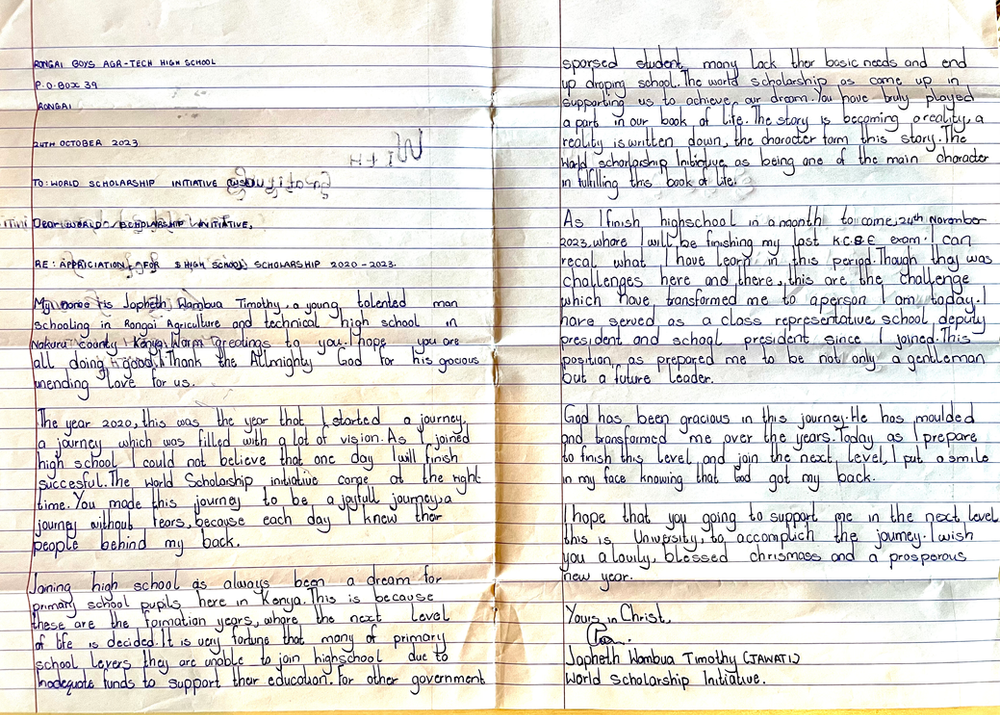 RONGAI BOYS AGR-TECH HIGH SCHOOL
P.O.BOX 39
RONGAI
24TH OCTOBER 2023
TO: WORLD SCHOLARSHIP INITIATIVE
Dear WORLD SCHOLARSHIP INITIATIVE,
RE: APPRICIATION FOR HIGH SCHOOL SCHOLARSHIP 2020-2023.
My name is Japheth Wambua Timothy, a young talented man
schooling in Rongai Agriculture and technical high school in
Nakuru county, Kenya. Warm greetings to you. I hope you are
all doing good. I Thank the Allmighty God for his gracious
unending love for us.
The year 2020, this was the year that I started a journey,
a journey which was filled with a lot of vision. As I joined
high school I could not believe that one day I will finish
succesful. The World Scholarship initiative came at the right
time. You made this journey to be a joyfull journey, a
journey without tears, because each day I knew ther
people behind my back.
Joining high school as always been a dream for
primary school pupils here in Kenya. This is because
these are the formation years, where the next level
of life is decided. It is very fortune that many of primary
school levers they are unable to join highschool due to
inadequate funds to support ther education. For other government
sporsed student, many lack ther basic needs and end
up droping school. The world scholarship as come up in
supporting us to achieve our dream. You have truly played
a part in our book of life. The story is becoming a reality, a
reality is written down, the character form this story. The
World scholarship Initiative as being one of the main character
in fulfilling this book of life.
As I finish highschool in a month to come, 24th November
2023, where I will be finishing my last K.C.S.E exam. I can
recal what I have learn in this period. Though they was
challenges here and there, this are the challenge
which have transformed me to a person I am today. I
have served as a class representative, school deputy
president and school president since I joined. This
position, as prepared me to be not only a gentleman
but a future leader.
God has been gracious in this journey. He has moulded
and transformed me over the years. Today as I prepare
to finish this level and join the next level, I put a smile
in my face knowing that God got my back.
I hope that you going to support me in the next level
this is University, to accomplish the journey. I wish
you a lovily, blessed chrismass and a prosporous
new year.
Yours in Christ,
Japheth Wambua Timothy (JAWATI)
World Scholarship Initiative.